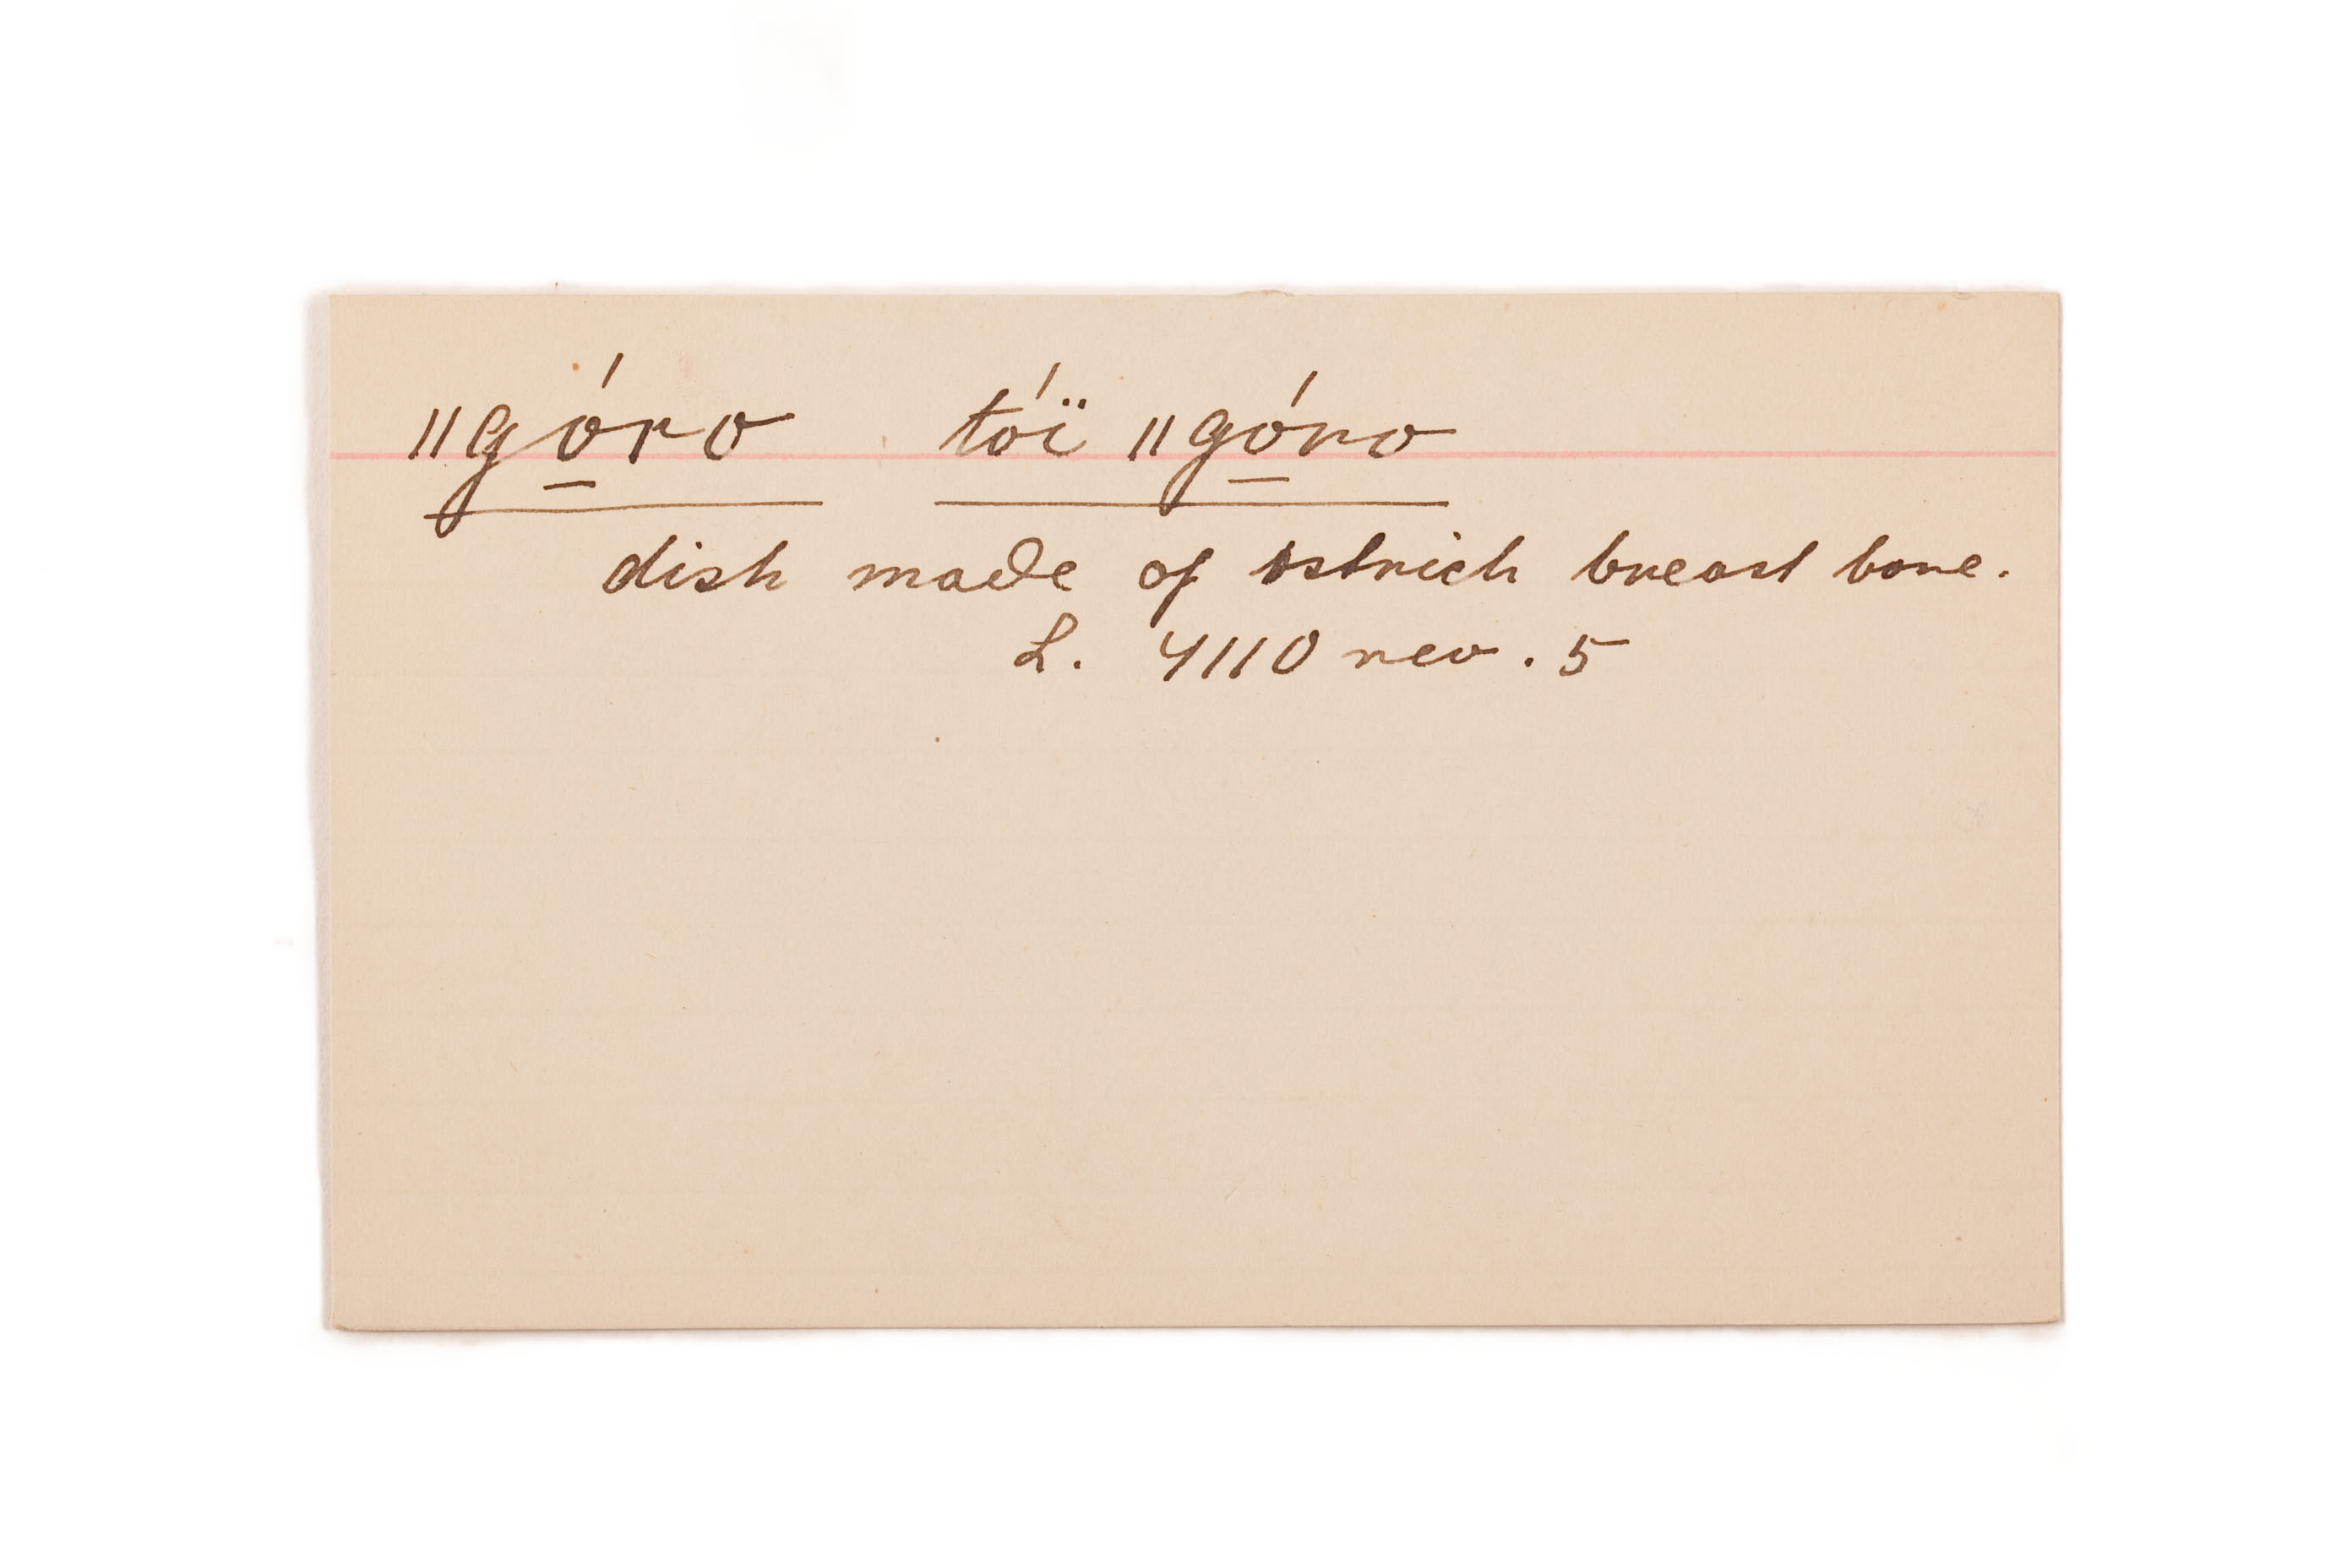 ǁgó̱ro tóï ǁgó̱ro
dish made of ostrich breast bone.
L. 4110 rev. 5